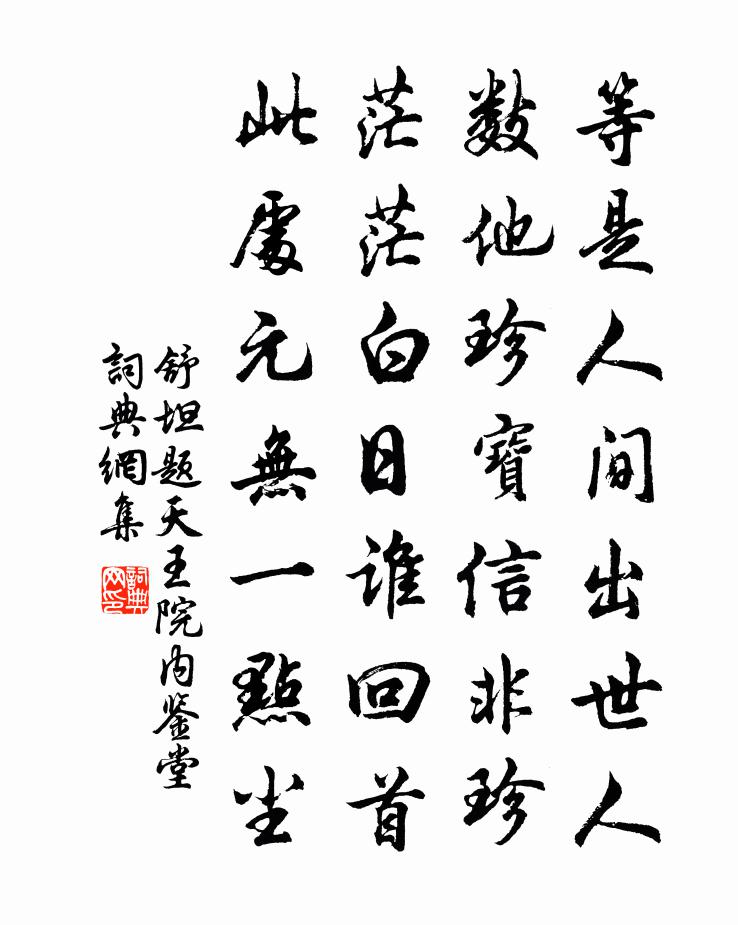 等是人间出世人
数他珍寶信非珍
茫茫白日谁回首
此處元無一點尘
舒坦题天王院内鉴堂
詞典網集
詞典
网印